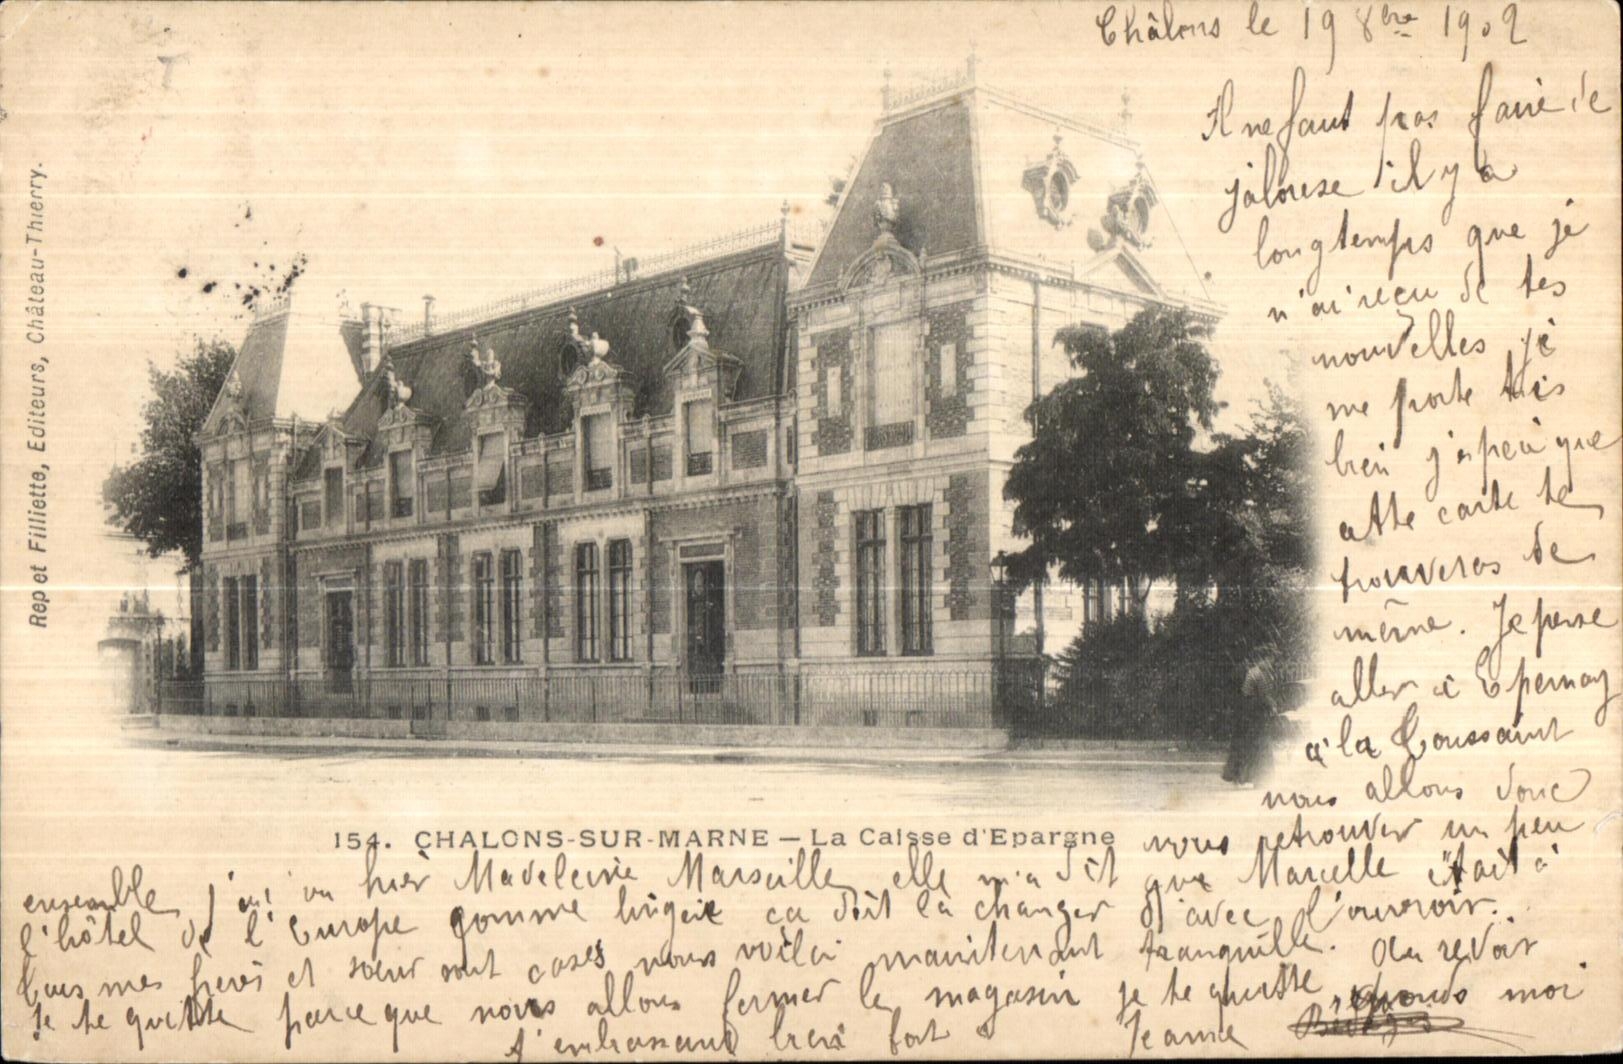 Châlons le 19 8bre 1902
Il ne faut pas faire de
jalouse il y a
longtemps que je
n'ai reçu de tes
nouvelles je
me porte très
bien j'espère que
cette carte te
trouveras de
même. Je pense
aller à Epernay
à la Toussaint
nous allons donc
nous retrouver un peu
ensemble j'ai vu hier Madeleine Marseille elle m'a dit que Marcelle était à
l'hôtel de l'Europe comme lingère ca doit la changer d'avec l'ouvroir.
Tous mes frères et sœur sont casés nous voilà maintenant tranquille. Au revoir
Je te quitte parce que nous allons fermer le magasin je te quitte réponds moi
t'embrassant bien fort Jeanne
154. CHALONS-SUR-MARNE — La Caisse d'Epargne
Rep et Filliette, Editeurs, Château-Thierry.